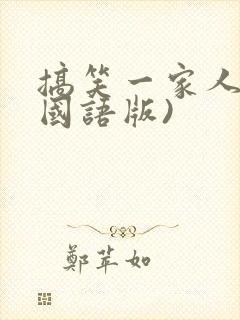 搞笑一家人
國語版)
鄭苹如